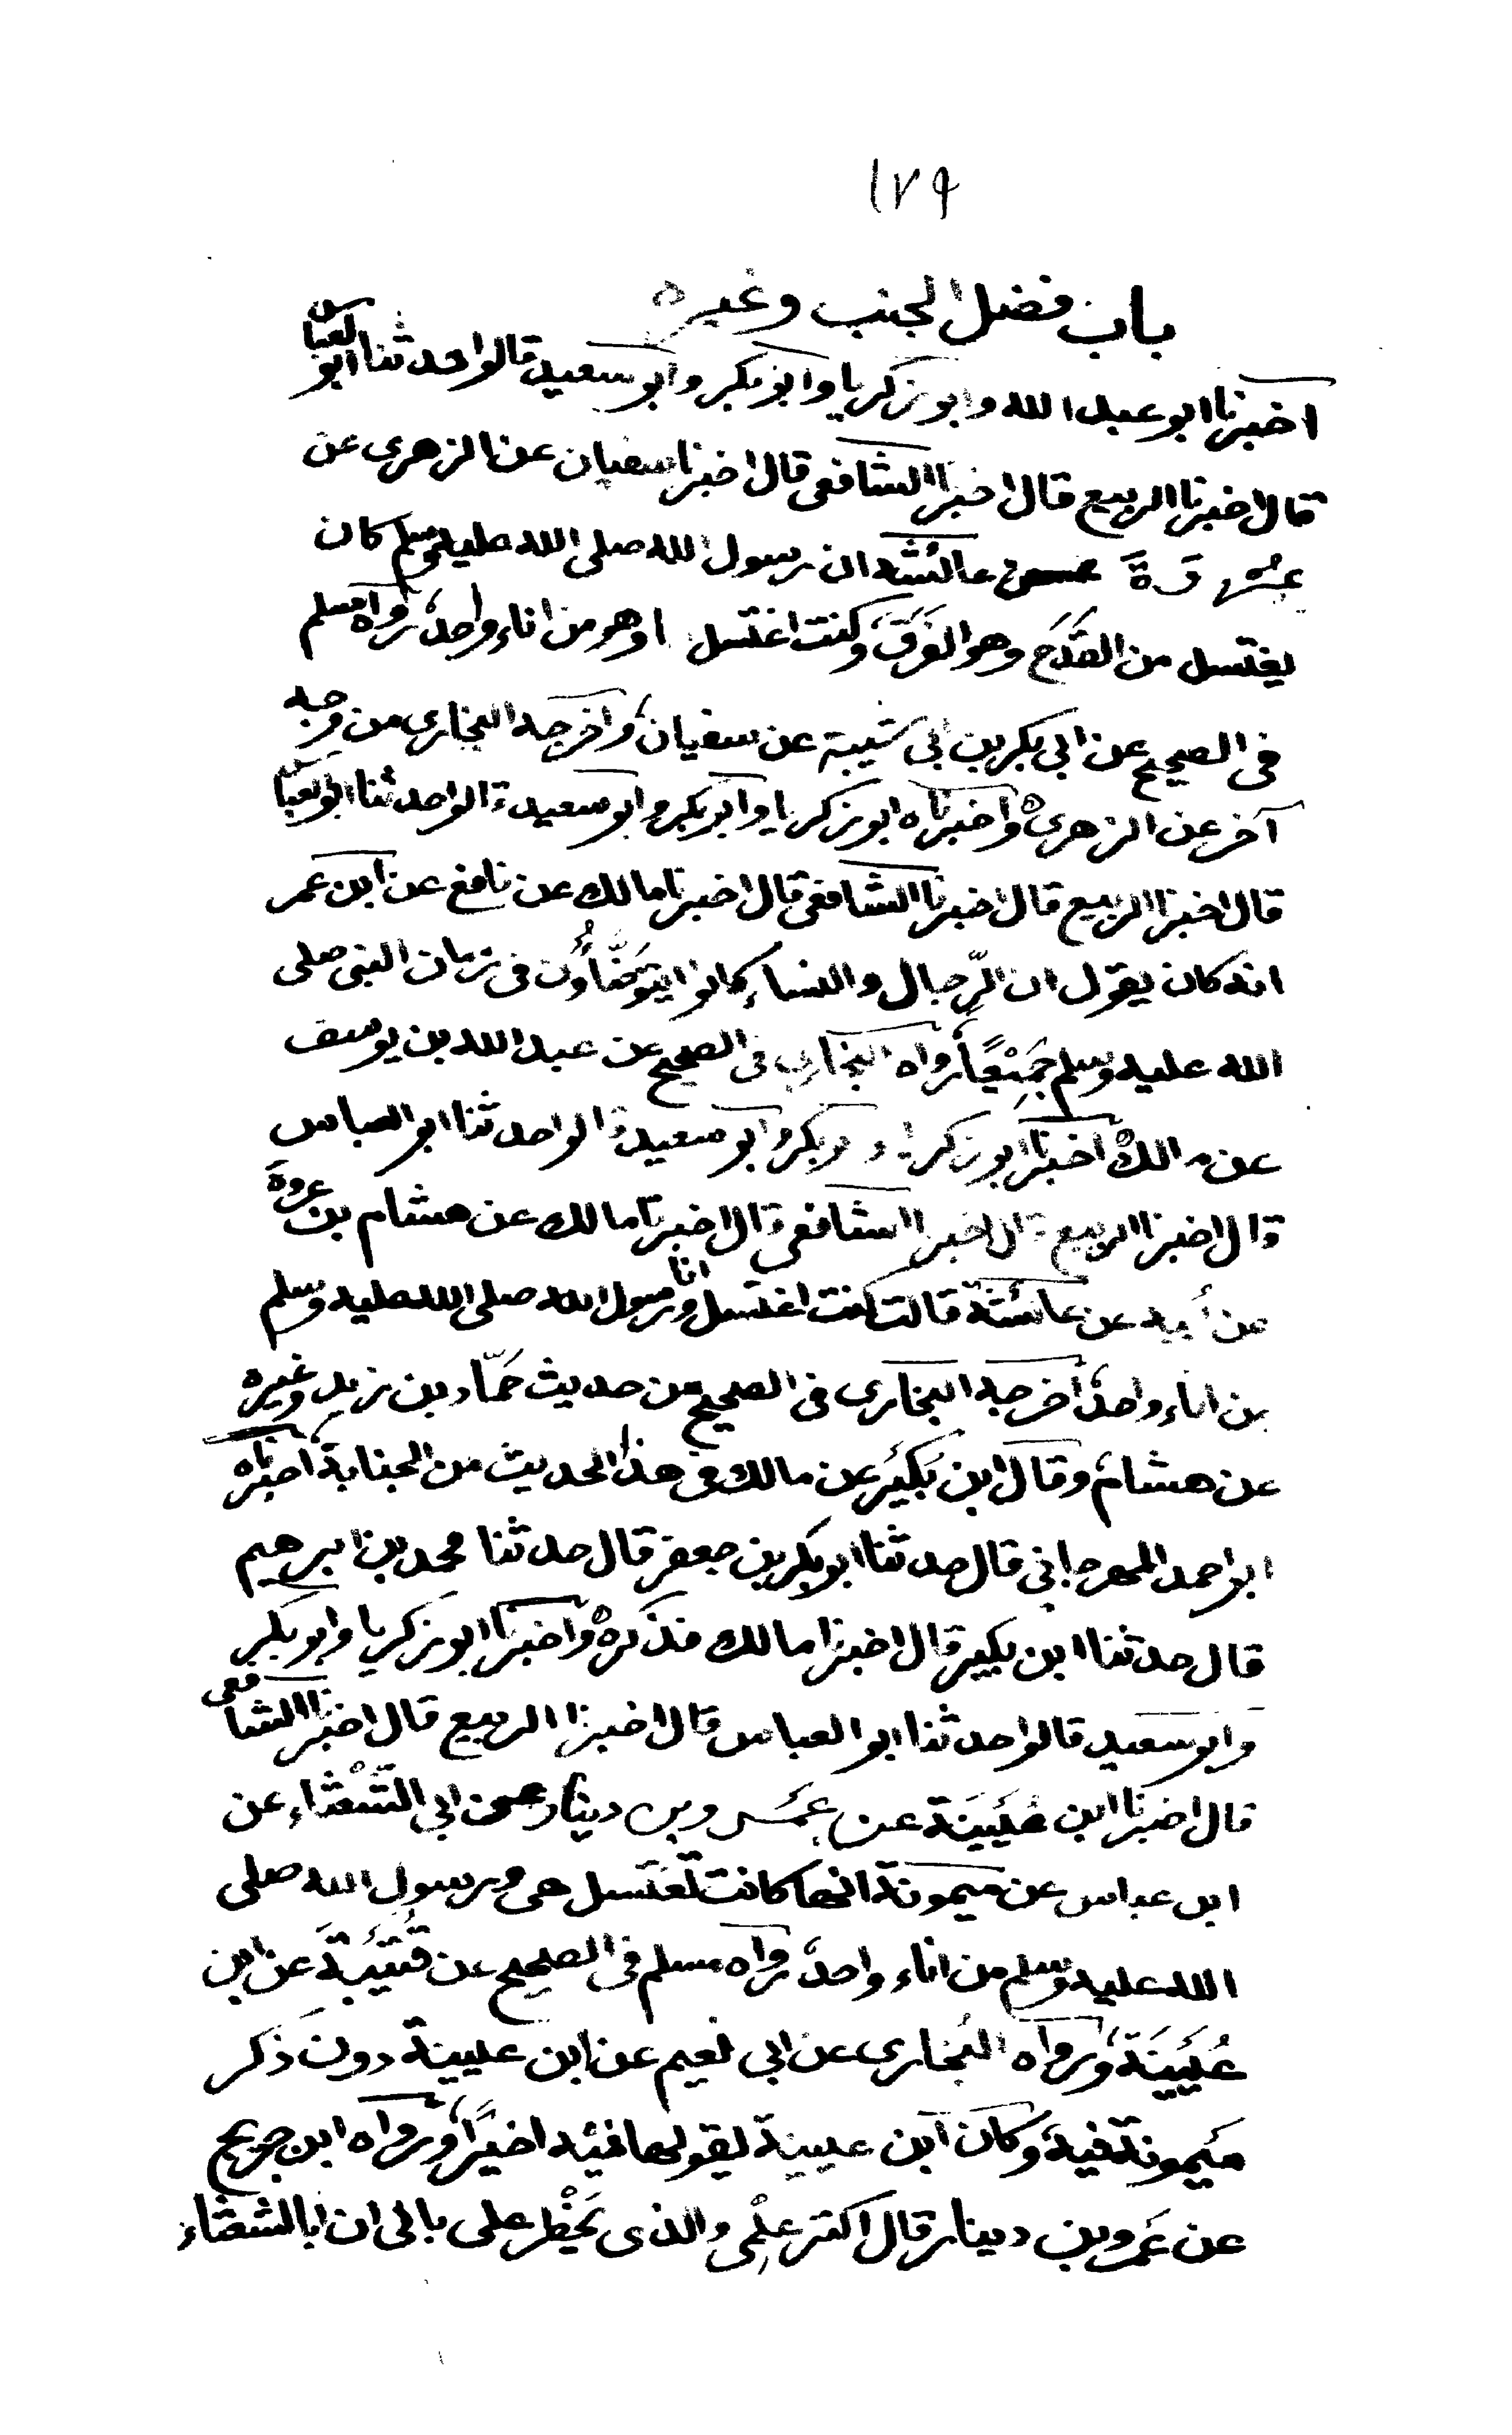 ١٧٩
باب فضل الجنب وغيره
اخبرنا ابو عبد الله وابو زكريا وابو بكر وابو سعيد قالوا حدثنا ابو العباس
قال اخبرنا الربيع قال اخبرنا الشافعى قال اخبرنا سفيان عن الزهرى عن
عروة عن عائشة ان رسول الله صلى الله عليه وسلم كان
يغتسل من القَدَح وهو الفَرَق وكنت اغتسل انا وهو من اناء واحد، رواه مسلم
فى الصحيح عن ابى بكر بن ابى شيبة عن سفيان، واخرجه البخارى من وجه
آخر عن الزهرى ه واخبرناه ابو زكريا وابو بكر وابو سعيد قالوا حدثنا ابو العباس
قال اخبرنا الربيع قال اخبرنا الشافعى قال اخبرنا مالك عن نافع عن ابن عمر
انه كان يقول ان الرّجال والنساء كانوا يتوَضَّأُون فى زمان النبى صلى
الله عليه وسلم جَمِيْعًا، رواه البخارى فى الصحيح عن عبد الله بن يوسف
عن مالك ه اخبرنا ابو زكريا وابو بكر وابو سعيد قالوا حدثنا ابو العباس
قال اخبرنا الربيع قال اخبرنا الشافعى قال اخبرنا مالك عن هشام بن عروة
عن أبيه عن عائشة قالت كنت اغتسل انا ورسول الله صلى الله عليه وسلم
من اناء واحد، اخرجه البخارى فى الصحيح من حديث حَمّاد بن زيد وغيره
عن هشام، وقال ابن بُكَيْر عن مالك فى هذا الحديث من الجنابة، اخبرناه
ابو احمد المهرجانى قال حدثنا ابو بكر بن جعفر قال حدثنا محمد بن ابرهيم
قال حدثنا ابن بكير قال اخبرنا مالك فذكره ه واخبرنا ابو زكريا وابو بكر
وابو سعيد قالوا حدثنا ابو العباس قال اخبرنا الربيع قال اخبرنا الشافعى
قال اخبرنا ابن عُيَيْنَة عن عَمْرو بن دينار عن ابى الشَّعْثاء عن
ابن عباس عن ميمونة انها كانت تغتسل هى ورسول الله صلى
الله عليه وسلم من اناء واحد، رواه مسلم فى الصحيح عن قُتَيْبَة عن ابن
عُيَيْنَة، ورواه البخارى عن ابى نعيم عن ابن عيينة دون ذكر
مَيْمونة فيه، وكان ابن عيينة يقولها فيه اخيرًا، ورواه ابن جريج
عن عَمرو بن دينار قال اكثر عِلْمِى والذى يَخْطِر على بالى ان ابا الشعثاء